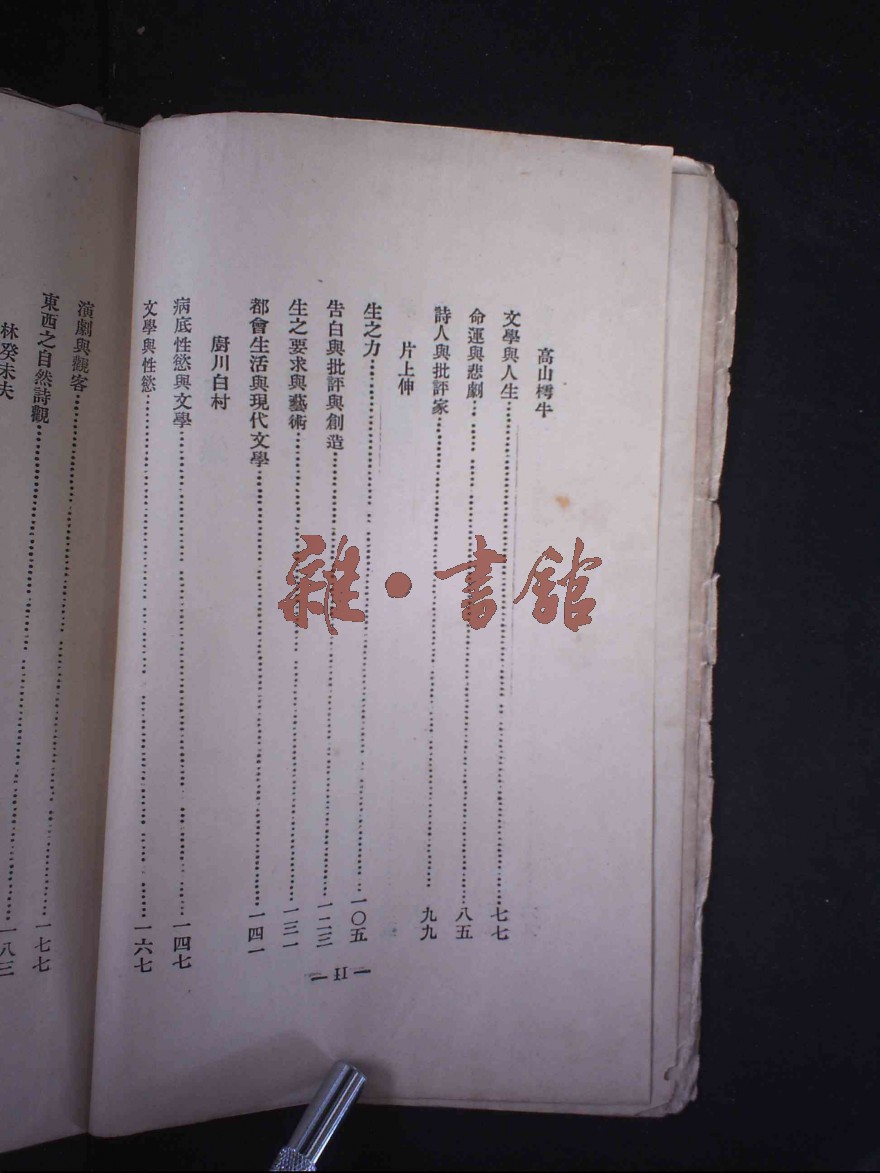 高山樗牛
文學與人生 七七
命運與悲劇 八五
詩人與批評家 九九
片上伸
生之力 一〇五
告白與批評與創造 一二三
生之要求與藝術 一三一
都會生活與現代文學 一四一
廚川白村
病底性慾與文學 一四七
文學與性慾 一六七
— II —
東西之自然詩觀 一七七
演劇與觀客 一八三
林癸未夫
雜·書館